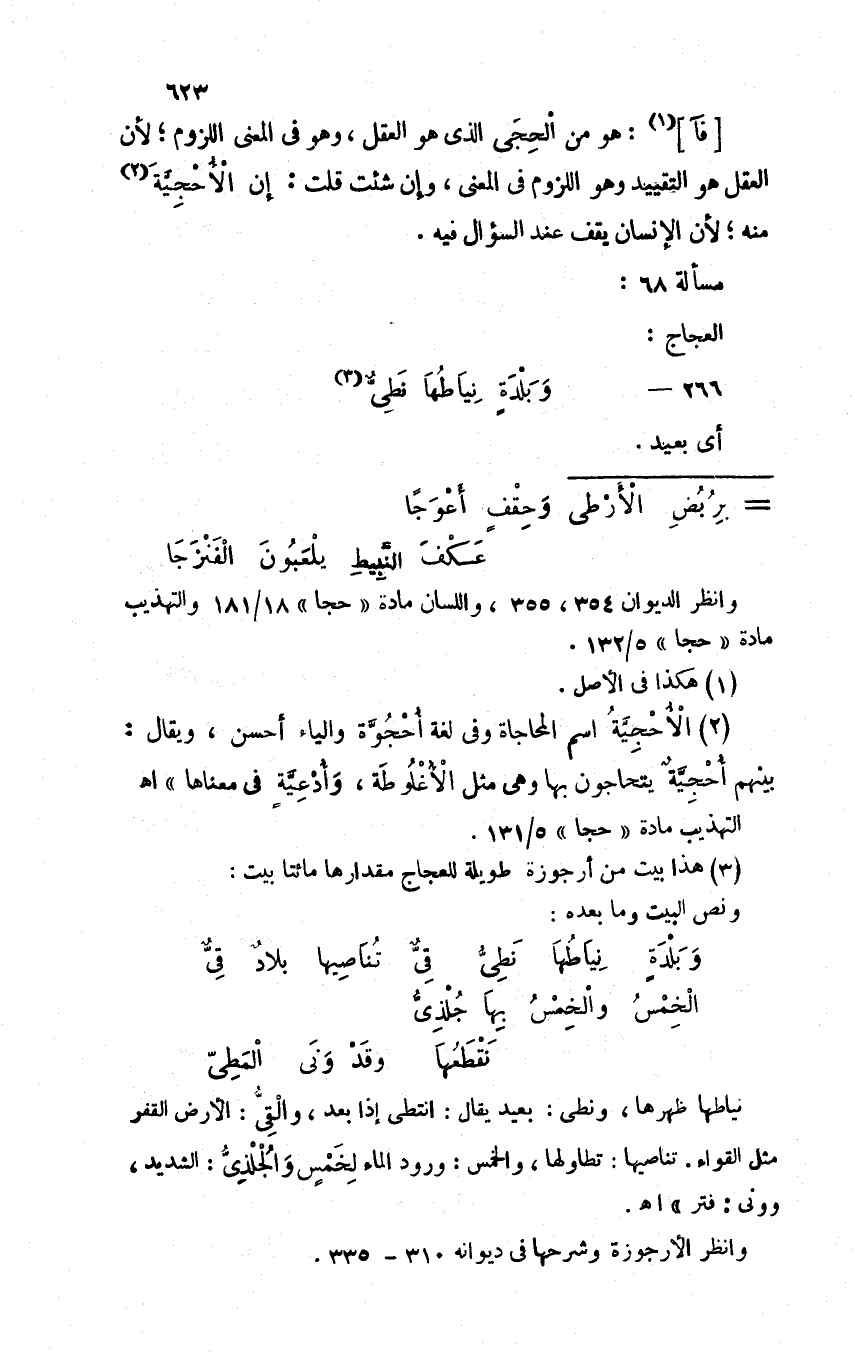 ٦٢٣
[ فآ ](١) : هو من الْحِجَى الذى هو العقل ، وهو فى المعنى اللزوم ؛ لأن
العقل هو التقييد وهو اللزوم فى المعنى ، وإن شئت قلت : إن الْأُحْجِيَّةَ(٢)
منه ؛ لأن الإنسان يقف عند السؤال فيه .
مسألة ٦٨ :
العجاج :
٢٦٦ — وَبَلْدَةٍ نِيَاطُهَا نَطِىٌّ(٣)
أى بعيد .
= بِرُبُضِ الْأَرْطى وَحِقْفٍ أَعْوَجًا
عَكْفَ النَّبِيطِ يلْعَبُونَ الْفَنْزَجَا
وانظر الديوان ٣٥٤ ، ٣٥٥ ، واللسان مادة « حجا » ١٨١/١٨ والتهذيب
مادة « حجا » ١٣٢/٥ .
(١) هكذا فى الأصل .
(٢) الْأُحْجِيَّةُ اسم المحاجاة وفى لغة أُحْجُوَّة والياء أحسن ، ويقال :
بينهم أُحْجِيَّةٌ يتحاجون بها وهى مثل الْأُغْلُوطَة ، وَأُدْعِيَّةٍ فى معناها » اه
التهذيب مادة « حجا » ١٣١/٥ .
(٣) هذا بيت من أرجوزة طويلة للعجاج مقدارها مائتا بيت :
ونص البيت وما بعده :
وَبَلْدَةٍ نِيَاطُهَا نَطِىُّ قِىٌّ تُنَاصِيها بلادٌ قِىٌّ
الْخِمْسُ والْخِمْسُ بِهَا جُلْذِىُّ
نَقْطَعُهَا وقَدْ وَنَى الْمَطِىّ
نياطها ظهرها ، ونطى : بعيد يقال : انتطى إذا بعد ، والْقِىُّ : الأرض القفر
مثل القواء . تناصيها : تطاولها ، والخمس : ورود الماء لِخَمْسٍ وَالْجُلْذِىُّ : الشديد ،
وونى : فتر » اه .
وانظر الأرجوزة وشرحها فى ديوانه ٣١٠ – ٣٣٥ .